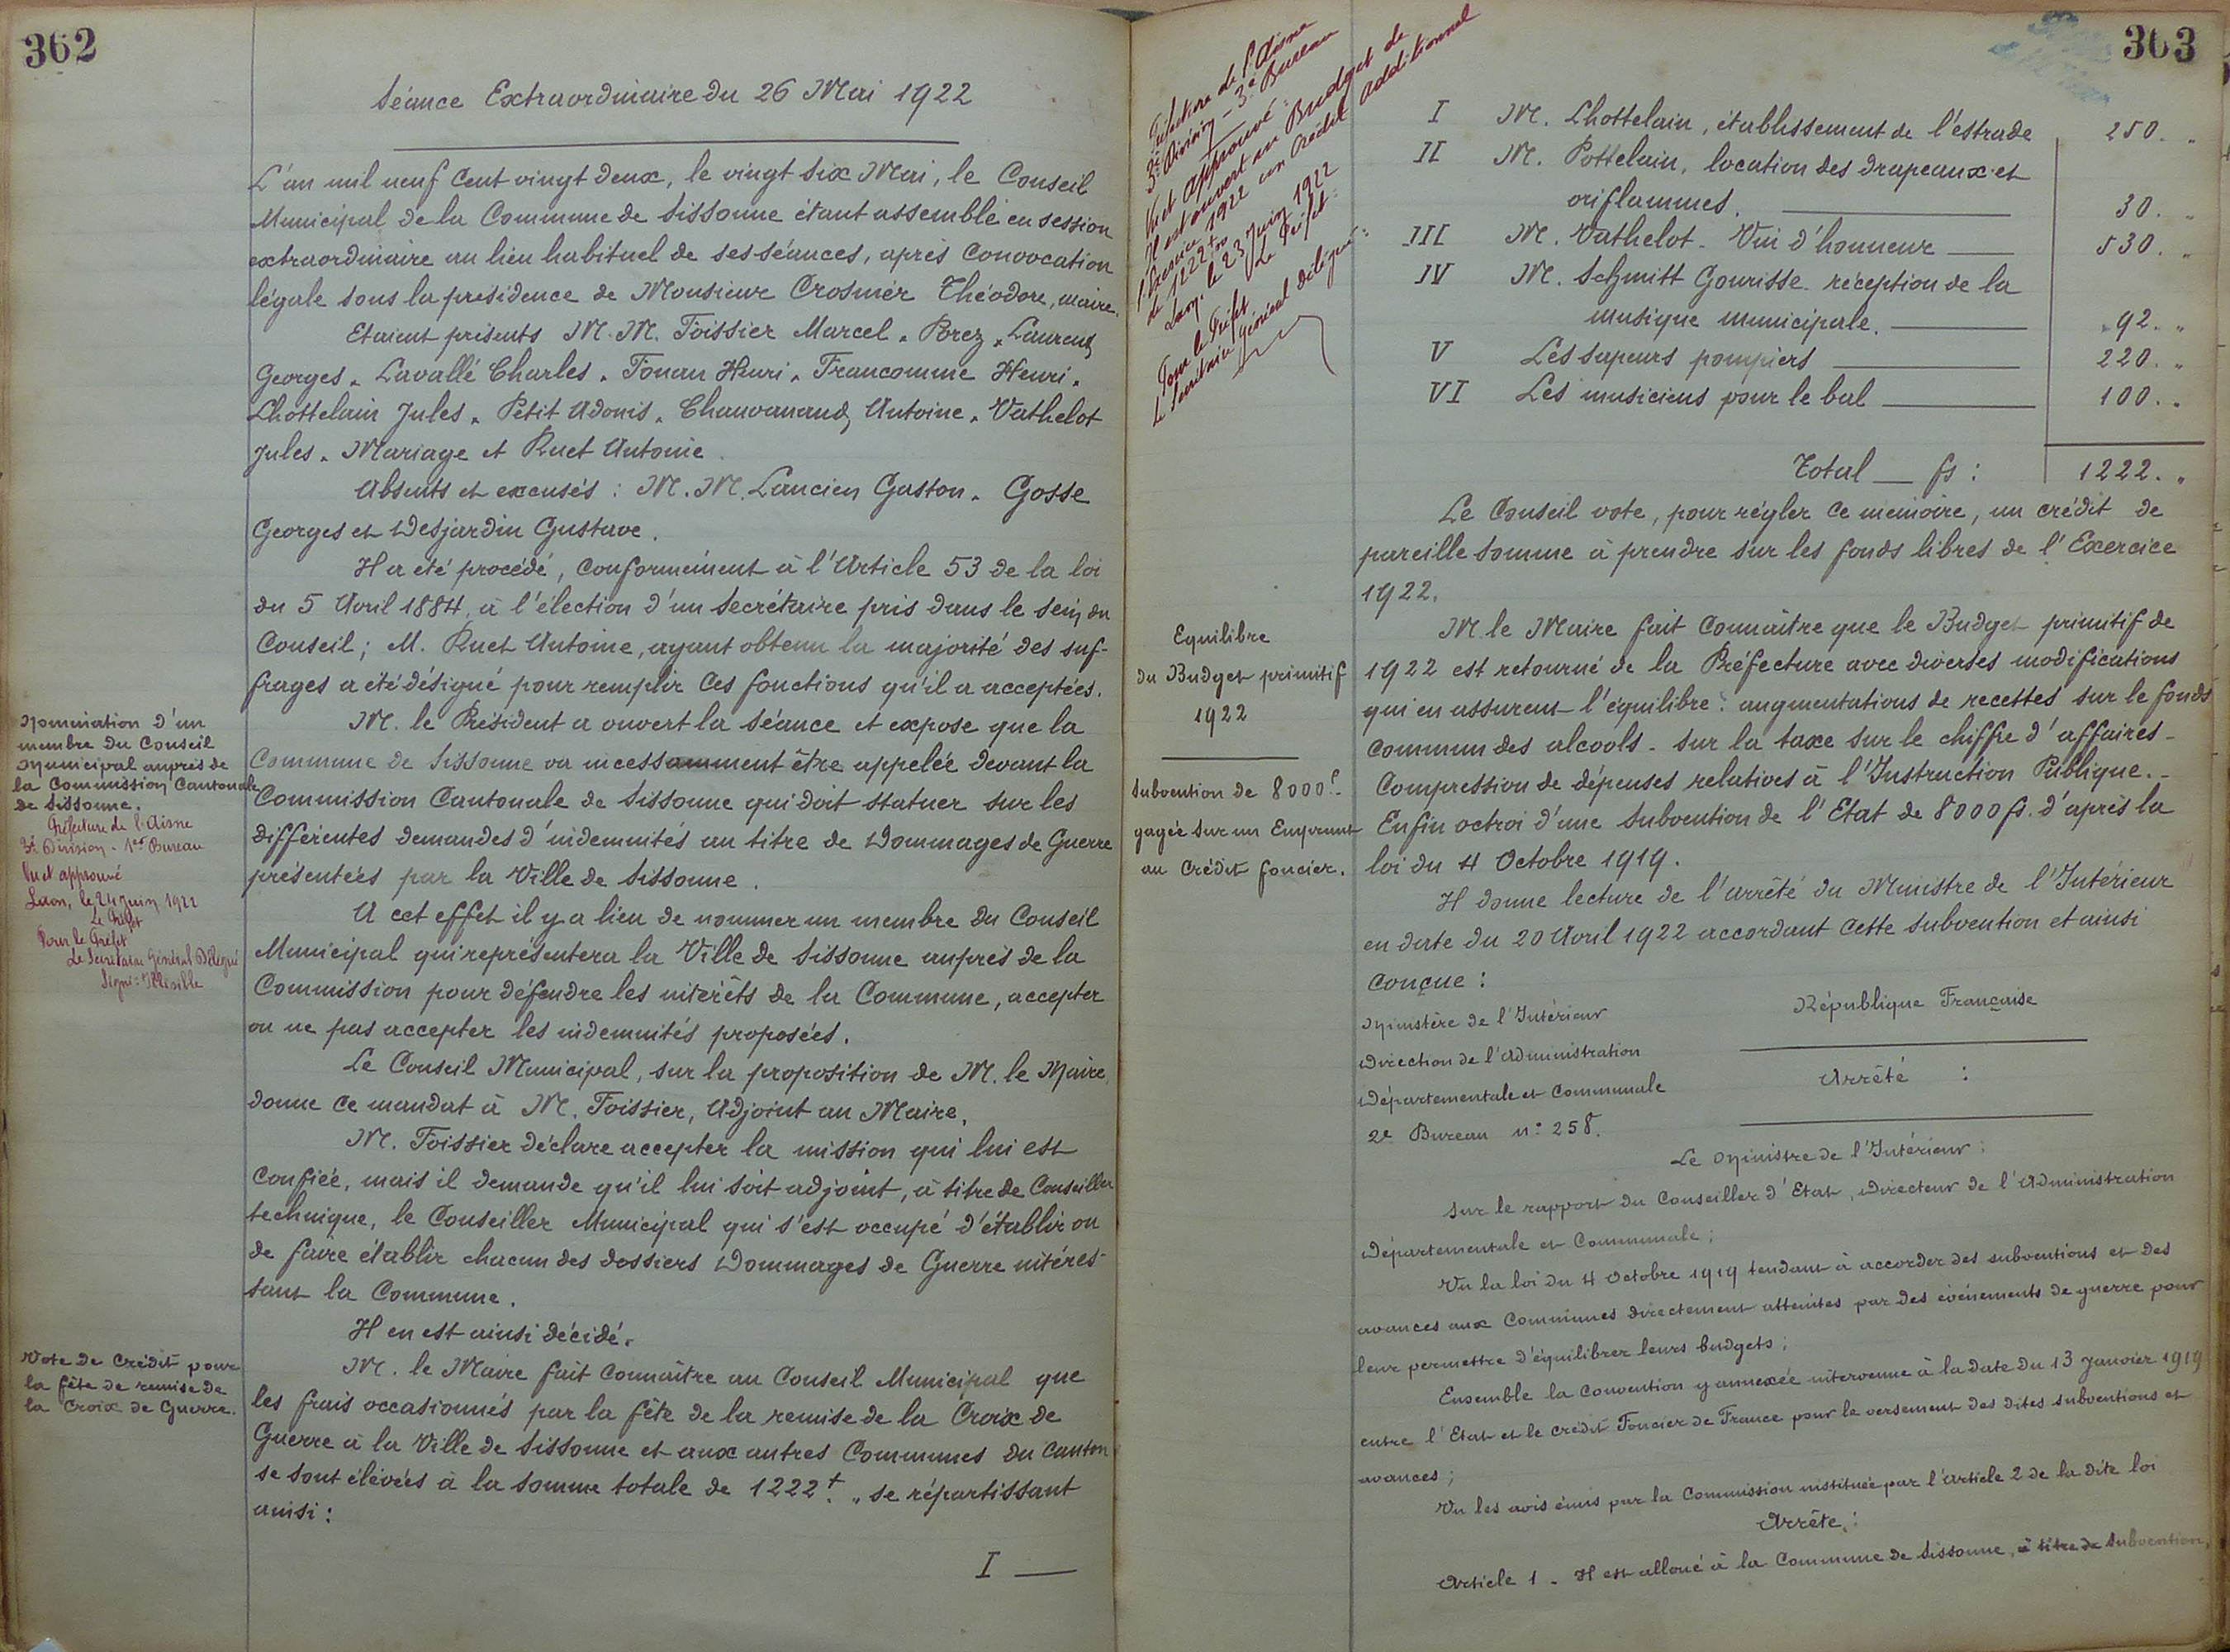 362
Séance Extraordinaire du 26 Mai 1922
L'an mil neuf cent vingt deux, le vingt six Mai, le Conseil
Municipal de la Commune de Sissonne étant assemblé en session
extraordinaire au lieu habituel de ses séances, après Convocation
légale sous la présidence de Monsieur Crosmer Théodore, maire.
Etaient présents M.M. Foissier Marcel. Porez. Laurent
Georges. Lavallé Charles. Fonan Henri. Francomme Henri.
Lhottelain Jules. Petit Adonis. Chauvanaud, Antoine. Vathelot
Jules. Mariage et Ruet Antoine.
Absents et excusés : M.M. Lancien Gaston. Gosse
Georges et Desjardin Gustave.
Il a été procédé, conformément à l'Article 53 de la loi
du 5 Avril 1884, à l'élection d'un secrétaire pris dans le sein du
Conseil ; M. Ruet Antoine, ayant obtenu la majorité des suf-
frages a été désigné pour remplir ces fonctions qu'il a acceptées.
Nomination d'un
membre du Conseil
Municipal auprès de
la Commission Cantonale
de Sissonne.
Préfecture de l'Aisne
3e Division - 1er Bureau
Vu et approuvé
Laon, le 24 Juin 1922
Le Préfet
Pour le Préfet
Le Secrétaire Général Délégué
Signé : Illisible
M. le Président a ouvert la séance et expose que la
Commune de Sissonne va incessamment être appelée devant la
Commission Cantonale de Sissonne qui doit statuer sur les
différentes demandes d'indemnités au titre de Dommages de Guerre
présentées par la Ville de Sissonne.
A cet effet il y a lieu de nommer un membre du Conseil
Municipal qui représentera la Ville de Sissonne auprès de la
Commission pour défendre les intérêts de la Commune, accepter
ou ne pas accepter les indemnités proposées.
Le Conseil Municipal, sur la proposition de M. le Maire,
donne ce mandat à M. Foissier, Adjoint au Maire.
M. Foissier déclare accepter la mission qui lui est
confiée, mais il demande qu'il lui soit adjoint, à titre de Conseiller
technique, le Conseiller Municipal qui s'est occupé d'établir ou
de faire établir chacun des dossiers Dommages de Guerre intéres-
sant la Commune.
Il en est ainsi décidé.
Vote de Crédit pour
la fête de remise de
la Croix de Guerre.
M. le Maire fait connaître au Conseil Municipal que
les frais occasionnés par la fête de la remise de la Croix de
Guerre à la Ville de Sissonne et aux autres Communes du Canton
se sont élevées à la somme totale de 1222f. „ se répartissant
ainsi :
I —
363
Préfecture de l'Aisne
3e Division - 3e Bureau
Vu et approuvé :
Il est ouvert au Budget de
l'Exercice 1922 un Crédit additionnel
de 1222 frs
Laon, le 23 Juin 1922
Le Préfet :
Pour le Préfet
Le Secrétaire Général délégué :
I M. Lhottelain, établissement de l'estrade 250. „
II M. Pottelain, location des drapeaux et
oriflammes. — 30. „
III M. Vathelot. Vin d'honneur — 530. „
IV M. Schmitt Gourisse. réception de la
musique municipale. — 92. „
V Les sapeurs pompiers — 220. „
VI Les musiciens pour le bal — 100. „
Total — fs : 1222. „
Le Conseil vote, pour régler ce mémoire, un crédit de
pareille somme à prendre sur les fonds libres de l'Exercice
1922.
Equilibre
du Budget primitif
1922
M. le Maire fait connaître que le Budget primitif de
1922 est retourné de la Préfecture avec diverses modifications
qui en assurent l'équilibre : augmentations de recettes sur le fonds
commun des alcools - sur la taxe sur le chiffre d'affaires -
Compression de dépenses relatives à l'Instruction Publique. -
Subvention de 8000f.
gagée sur un Emprunt
au Crédit foncier.
Enfin octroi d'une subvention de l'Etat de 8000 fs. d'après la
loi du 4 Octobre 1919.
Il donne lecture de l'arrêté du Ministre de l'Intérieur
en date du 20 Avril 1922 accordant cette subvention et ainsi
conçue :
Ministère de l'Intérieur
Direction de l'Administration
Départementale et Communale
2e Bureau n° 258.
République Française
Arrêté :
Le Ministre de l'Intérieur :
Sur le rapport du Conseiller d'Etat, Directeur de l'Administration
Départementale et Communale ;
Vu la loi du 4 Octobre 1919 tendant à accorder des subventions et des
avances aux Communes directement atteintes par des événements de guerre pour
leur permettre d'équilibrer leurs budgets ;
Ensemble la Convention y annexée intervenue à la date du 13 Janvier 1919
entre l'Etat et le Crédit Foncier de France pour le versement des dites subventions et
avances ;
Vu les avis émis par la Commission instituée par l'Article 2 de la dite loi
Arrête :
Article 1 - Il est alloué à la Commune de Sissonne, à titre de subvention,